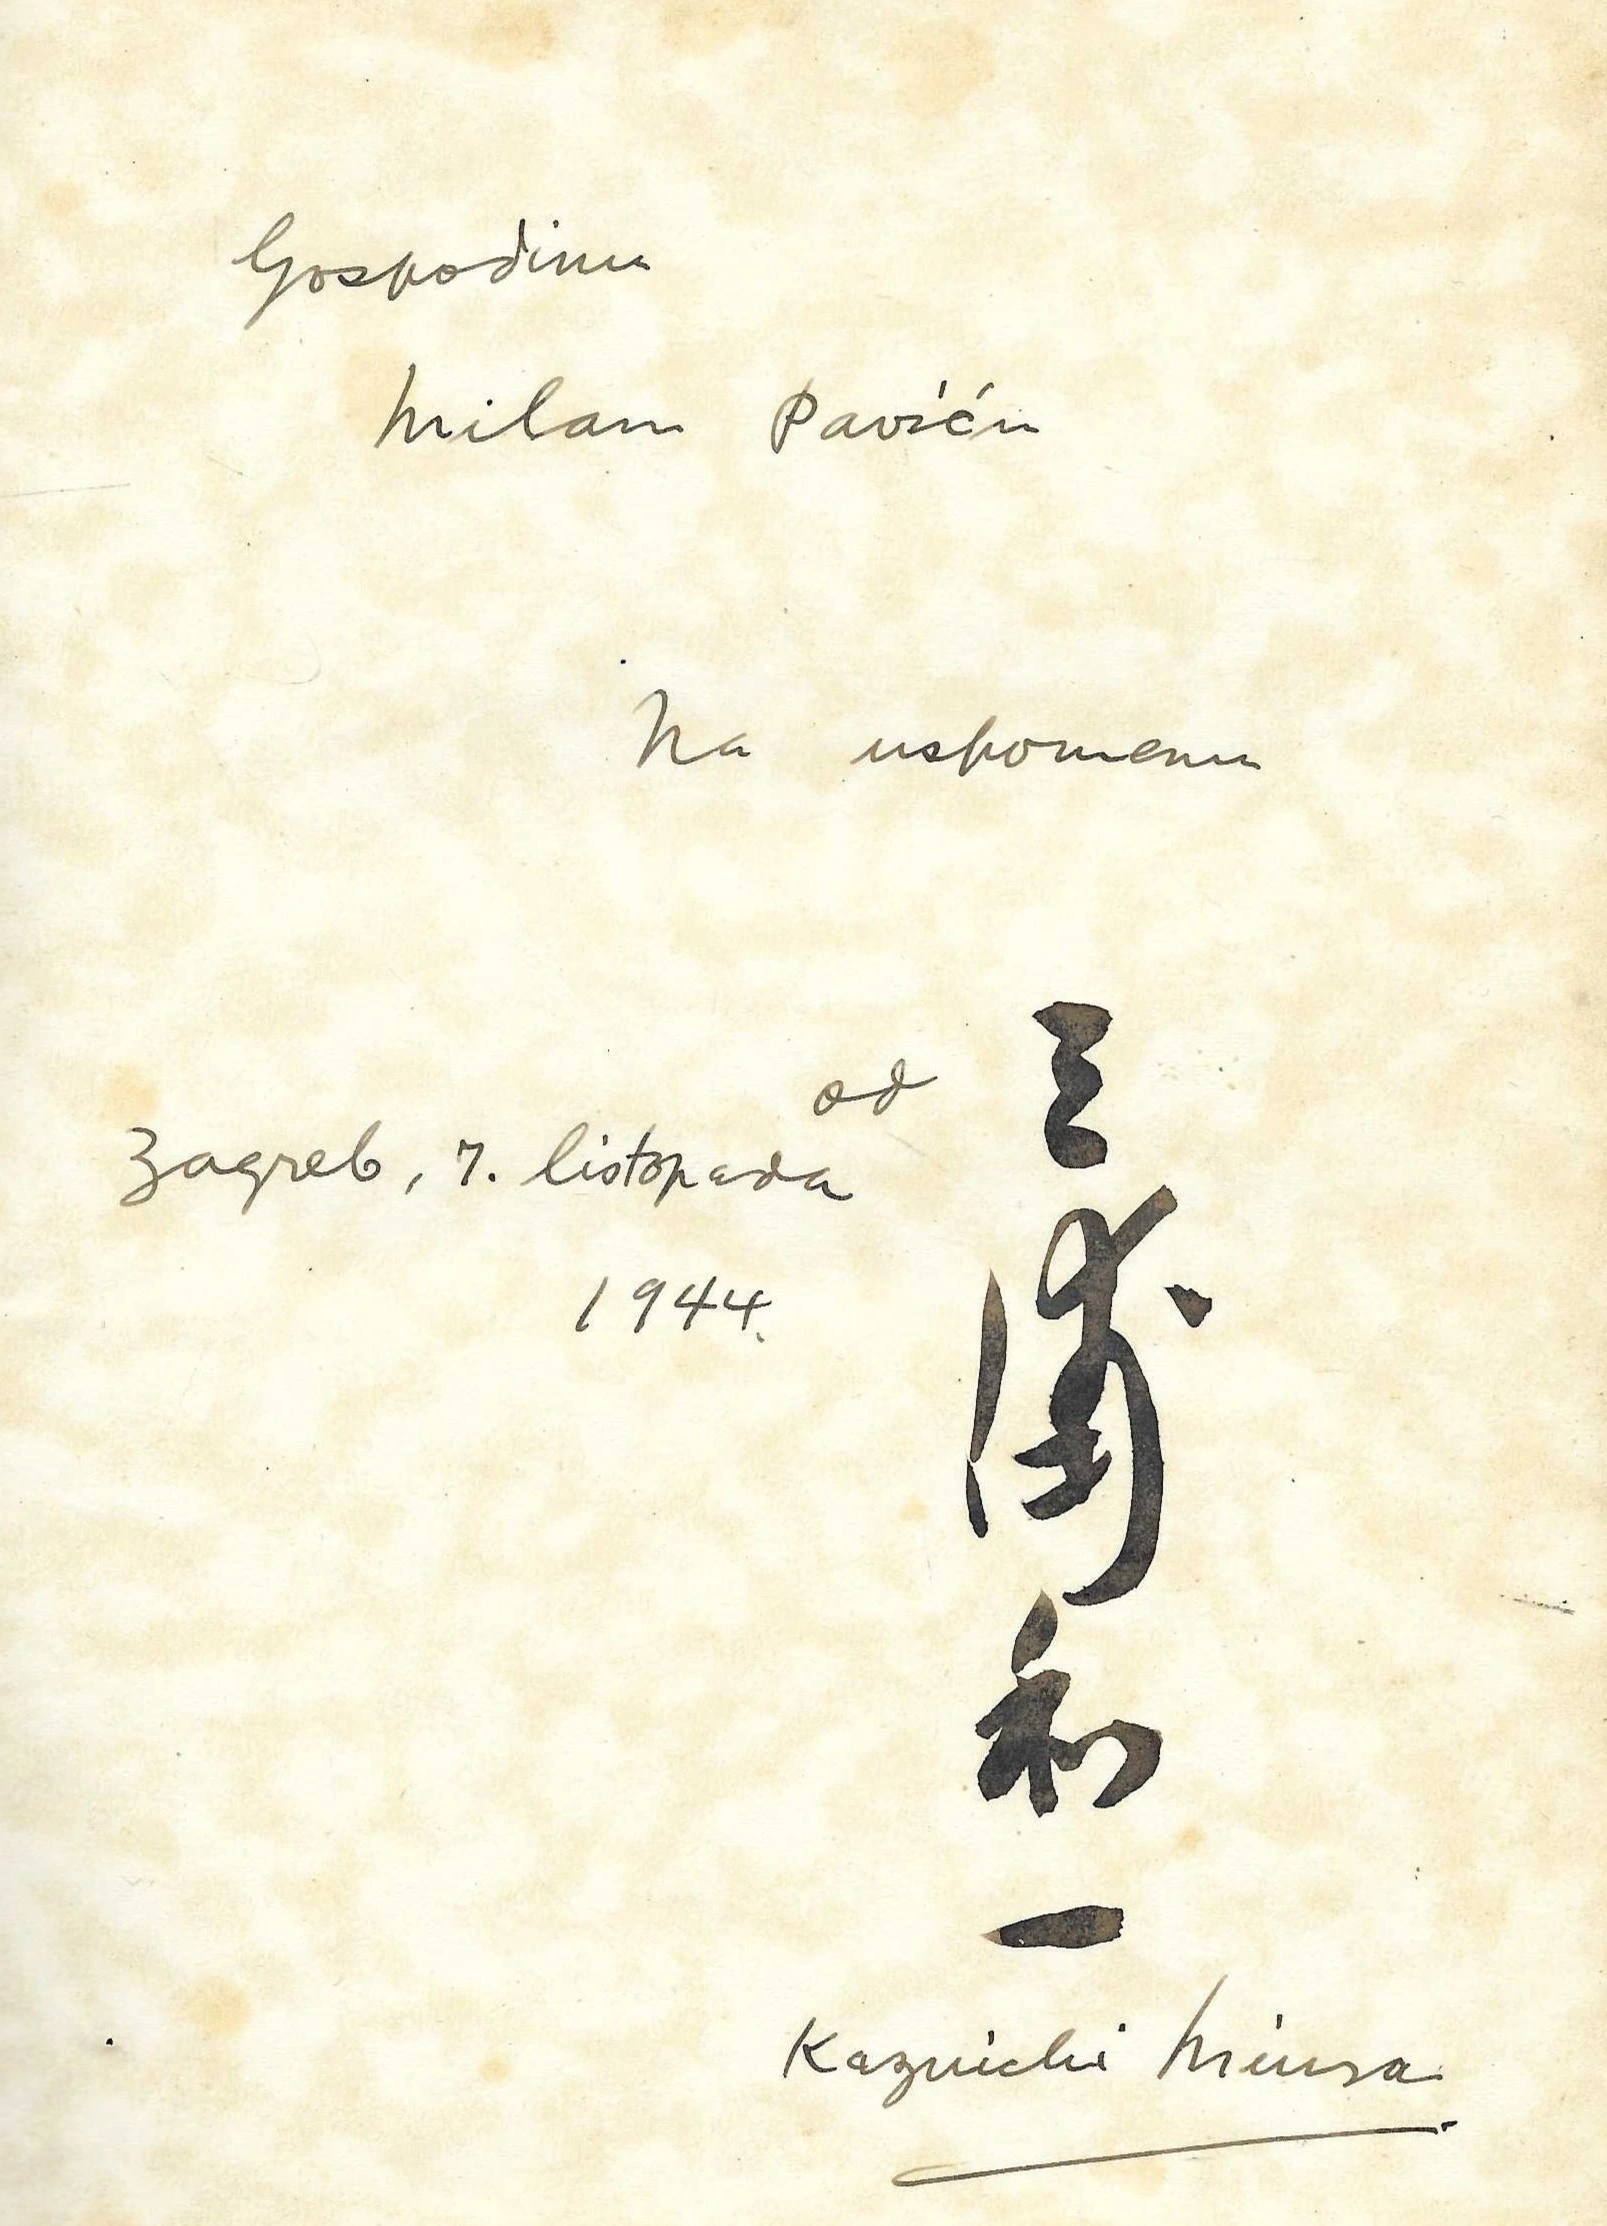 Gospodinu
Milanu Paviću
Na uspomenu
od
三浦和一
Zagreb, 7. listopada
1944.
Kazuichi Miura